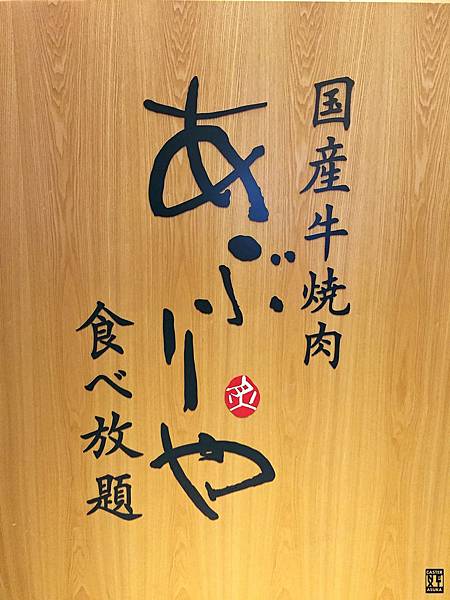 国産牛焼肉
あぶりや
食べ放題
CASTER
ASUKA